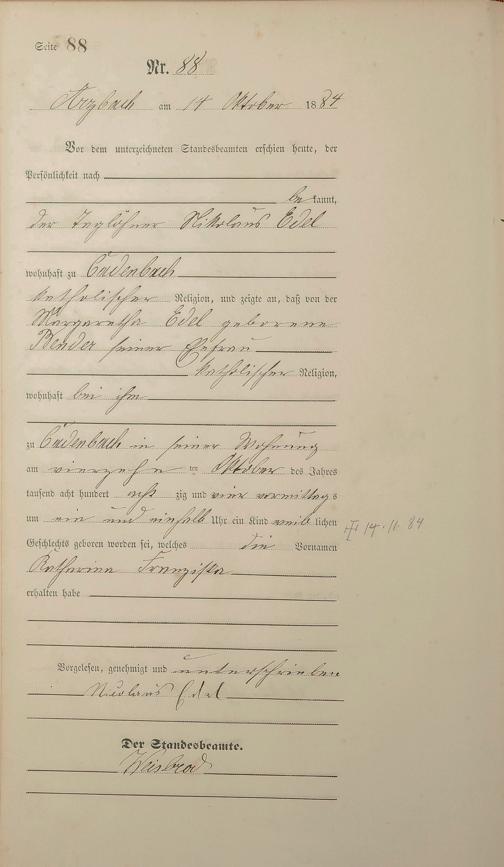 Seite 88
Nr. 88
Arzbach am 14 Oktober 1884
Vor dem unterzeichneten Standesbeamten erschien heute, der
Persönlichkeit nach
bekannt,
der Taglöhner Nikolaus Edel
wohnhaft zu Cadenbach
katholischer Religion, und zeigte an, daß von der
Margaretha Edel geborene
Bender seiner Ehefrau
katholischer Religion,
wohnhaft bei ihm
zu Cadenbach in seiner Wohnung
am vierzehn ten Oktober des Jahres
tausend acht hundert acht zig und vier vormittags
um ein und einhalb Uhr ein Kind weiblichen
Geschlechts geboren worden sei, welches die Vornamen
Katharina Franziska
erhalten habe
14.11.84
Vorgelesen, genehmigt und unterschrieben
Nicolaus Edel
Der Standesbeamte.
Weisbrod